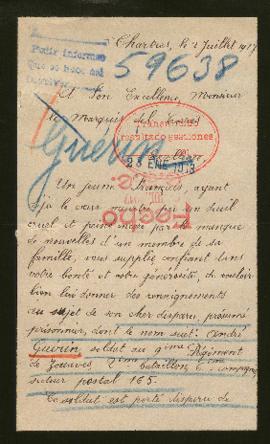 Chartres, le 2 Juillet 1917
Pedir informes
que se hace del
59638
A Son Excellence, Monsieur
le Marquis de la
Guerin
resultado gestiones
23 ENE 1918
Un jeune Français, ayant
déjà le cœur meurtri par un deuil
cruel et peiné par le manque
de nouvelles d'un membre de sa
famille, vous supplie confiant dans
votre bonté et votre générosité, de vouloir
bien lui donner des renseignements
au sujet de son cher disparu, présumé
prisonnier, dont le nom suit: André
Guérin, soldat au 9ème Régiment
de Zouaves, bataillon, compagnie
secteur postal 165.
Ce soldat est porté disparu de